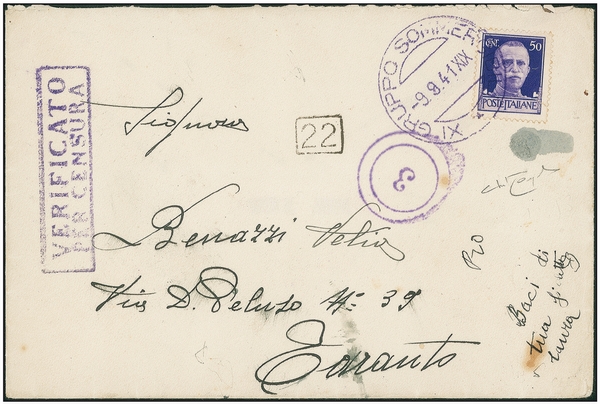 VERIFICATO
PER CENSURA
XI GRUPPO SOMMER
-9.9.41 XIX
CENT. 50
POSTE ITALIANE
22
3
Signora
Benazzi Velia
Via D. Peluso Nº 39
Taranto
Baci di
tua
Laura